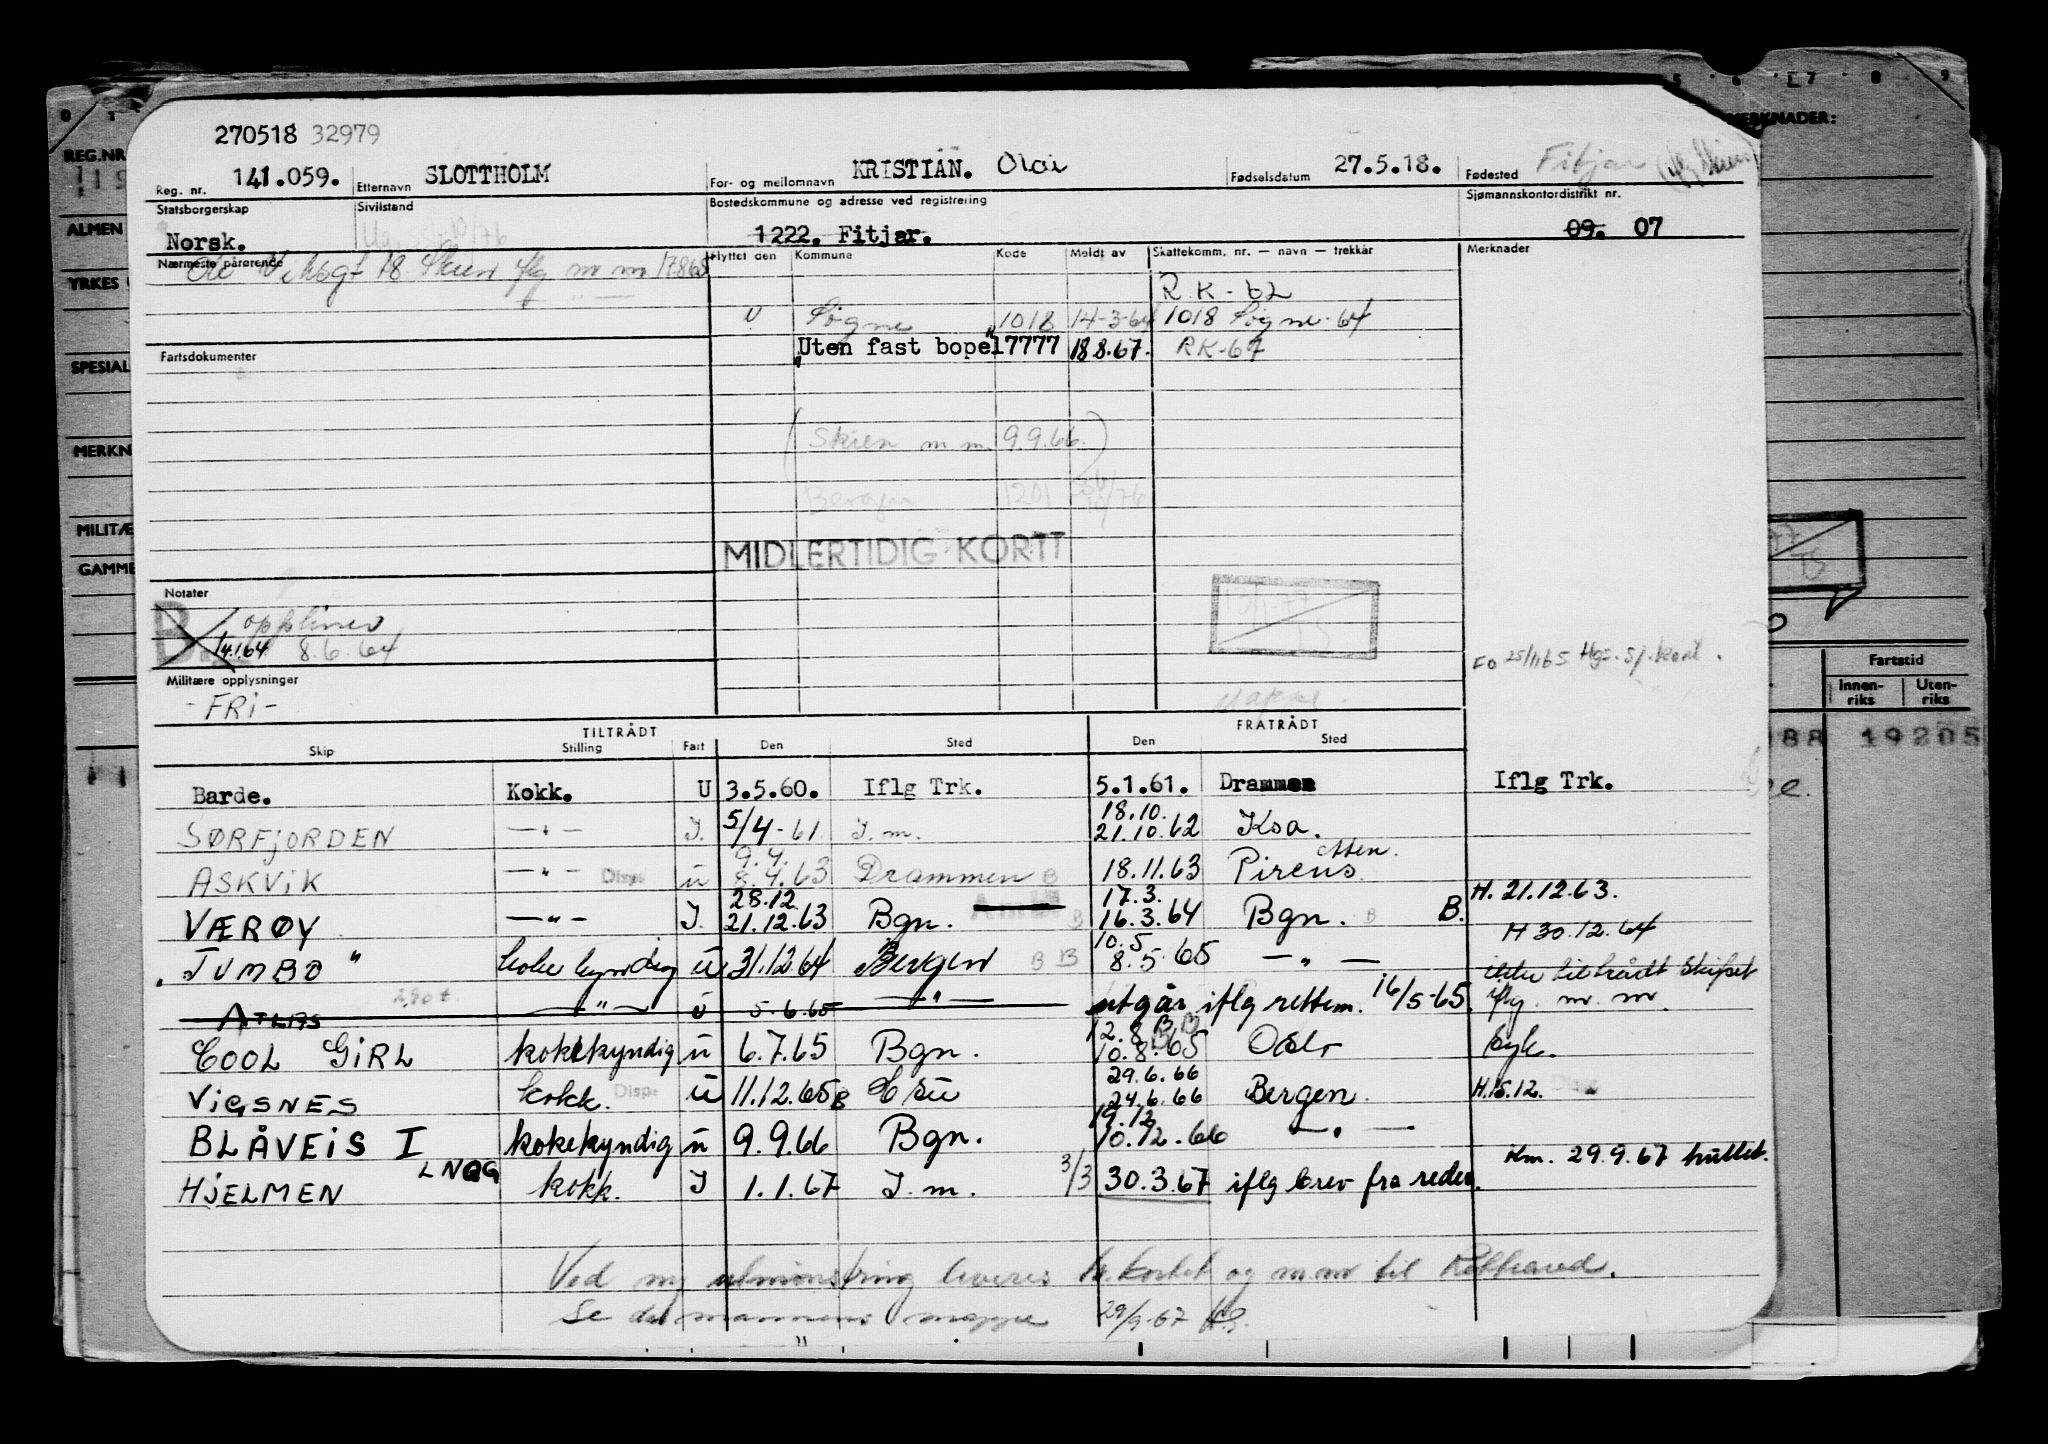 5 6 7 8 9
MERKNADER:
REG.NR
ALMEN
YRKES
SPESIAL
MERKN
MILITÆ
GAMME
270518 32979
Reg. nr. 141.059. Etternavn SLOTTHOLM For- og mellomnavn KRISTIAN. Olai Fødselsdatum 27.5.18. Fødested Fitjar
Statsborgerskap Sivilstand Bostedskommune og adresse ved registrering Sjømannskontordistrikt nr.
Norsk. 1222. Fitjar. 09. 07
Nærmeste pårørende Flyttet den Kommune Kode Meldt av Skattekomm. nr. — navn — trekkår Merknader
18. Skien iflg m m 17865
R K - 62
U Søgne 1018 14-3-64 1018 Søgne-64
Fartsdokumenter Uten fast bopel 7777 188.67. RK-67
(Skien m m. 9.9.66.)
Bergen 1201 10/76
MIDLERTIDIG KORTT
Notater
B. oppheves
14.1.64 8.6.64
FO 25/1165 Hgs. Sj.kont.
Militære opplysninger
-FRI-
Fartstid
Innen-riks Uten-riks
19205
TILTRÅDT FRATRÅDT
Skip Stilling Fart Den Sted Den Sted
Barde. Kokk. U 3.5.60. Iflg Trk. 5.1.61. Drammen Iflg Trk.
SØRFJORDEN —"— I. 5/4-61 I.m. 18.10. 21.10.62 Ksa.
ASKVIK —"— Disp ü 9.4. 8.4.63 Drammen B 18.11.63 Pireus
VÆRØY —"— I. 28.12 21.12.63 Bgn. B 17.3. 16.3.64 Bgn. B B. H. 21.12.63.
"JUMBO" kokekyndig ü 31.12.64 Bergen B B 10.5 8.5.65 —"— H 30.12.64
ATLAS —"— ü 5.6.65 —"— utgår iflg rettem. 16/5-65. ikke tiltrådt skipet iflg. m. m.
COOL GIRL kokekyndig ü 6.7.65 Bgn. 12.8 10.8.65 B B Oslo syk.
VIGSNES kokk. Disp. ü 11.12.65 B 29.6.66 24.6.66 Bergen. H.15.12.
BLÅVEIS I kokekyndig ü 9.9.66 Bgn. 19.12 10.12.66 —"—
HJELMEN LNQG kokk. I 1.1.67 I.m. 3/3 30.3.67 iflg brev fra rederi. 29.9.67 hullet.
Ved ny utmønstring leveres h.kortet og m.m til
Se mannens mappe 29/9-67